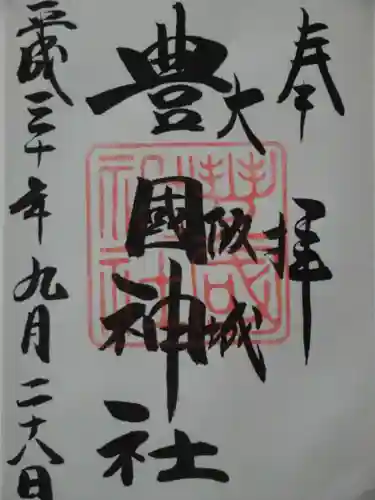 奉拝
大阪城
豊國神社
平成三十年九月二十八日